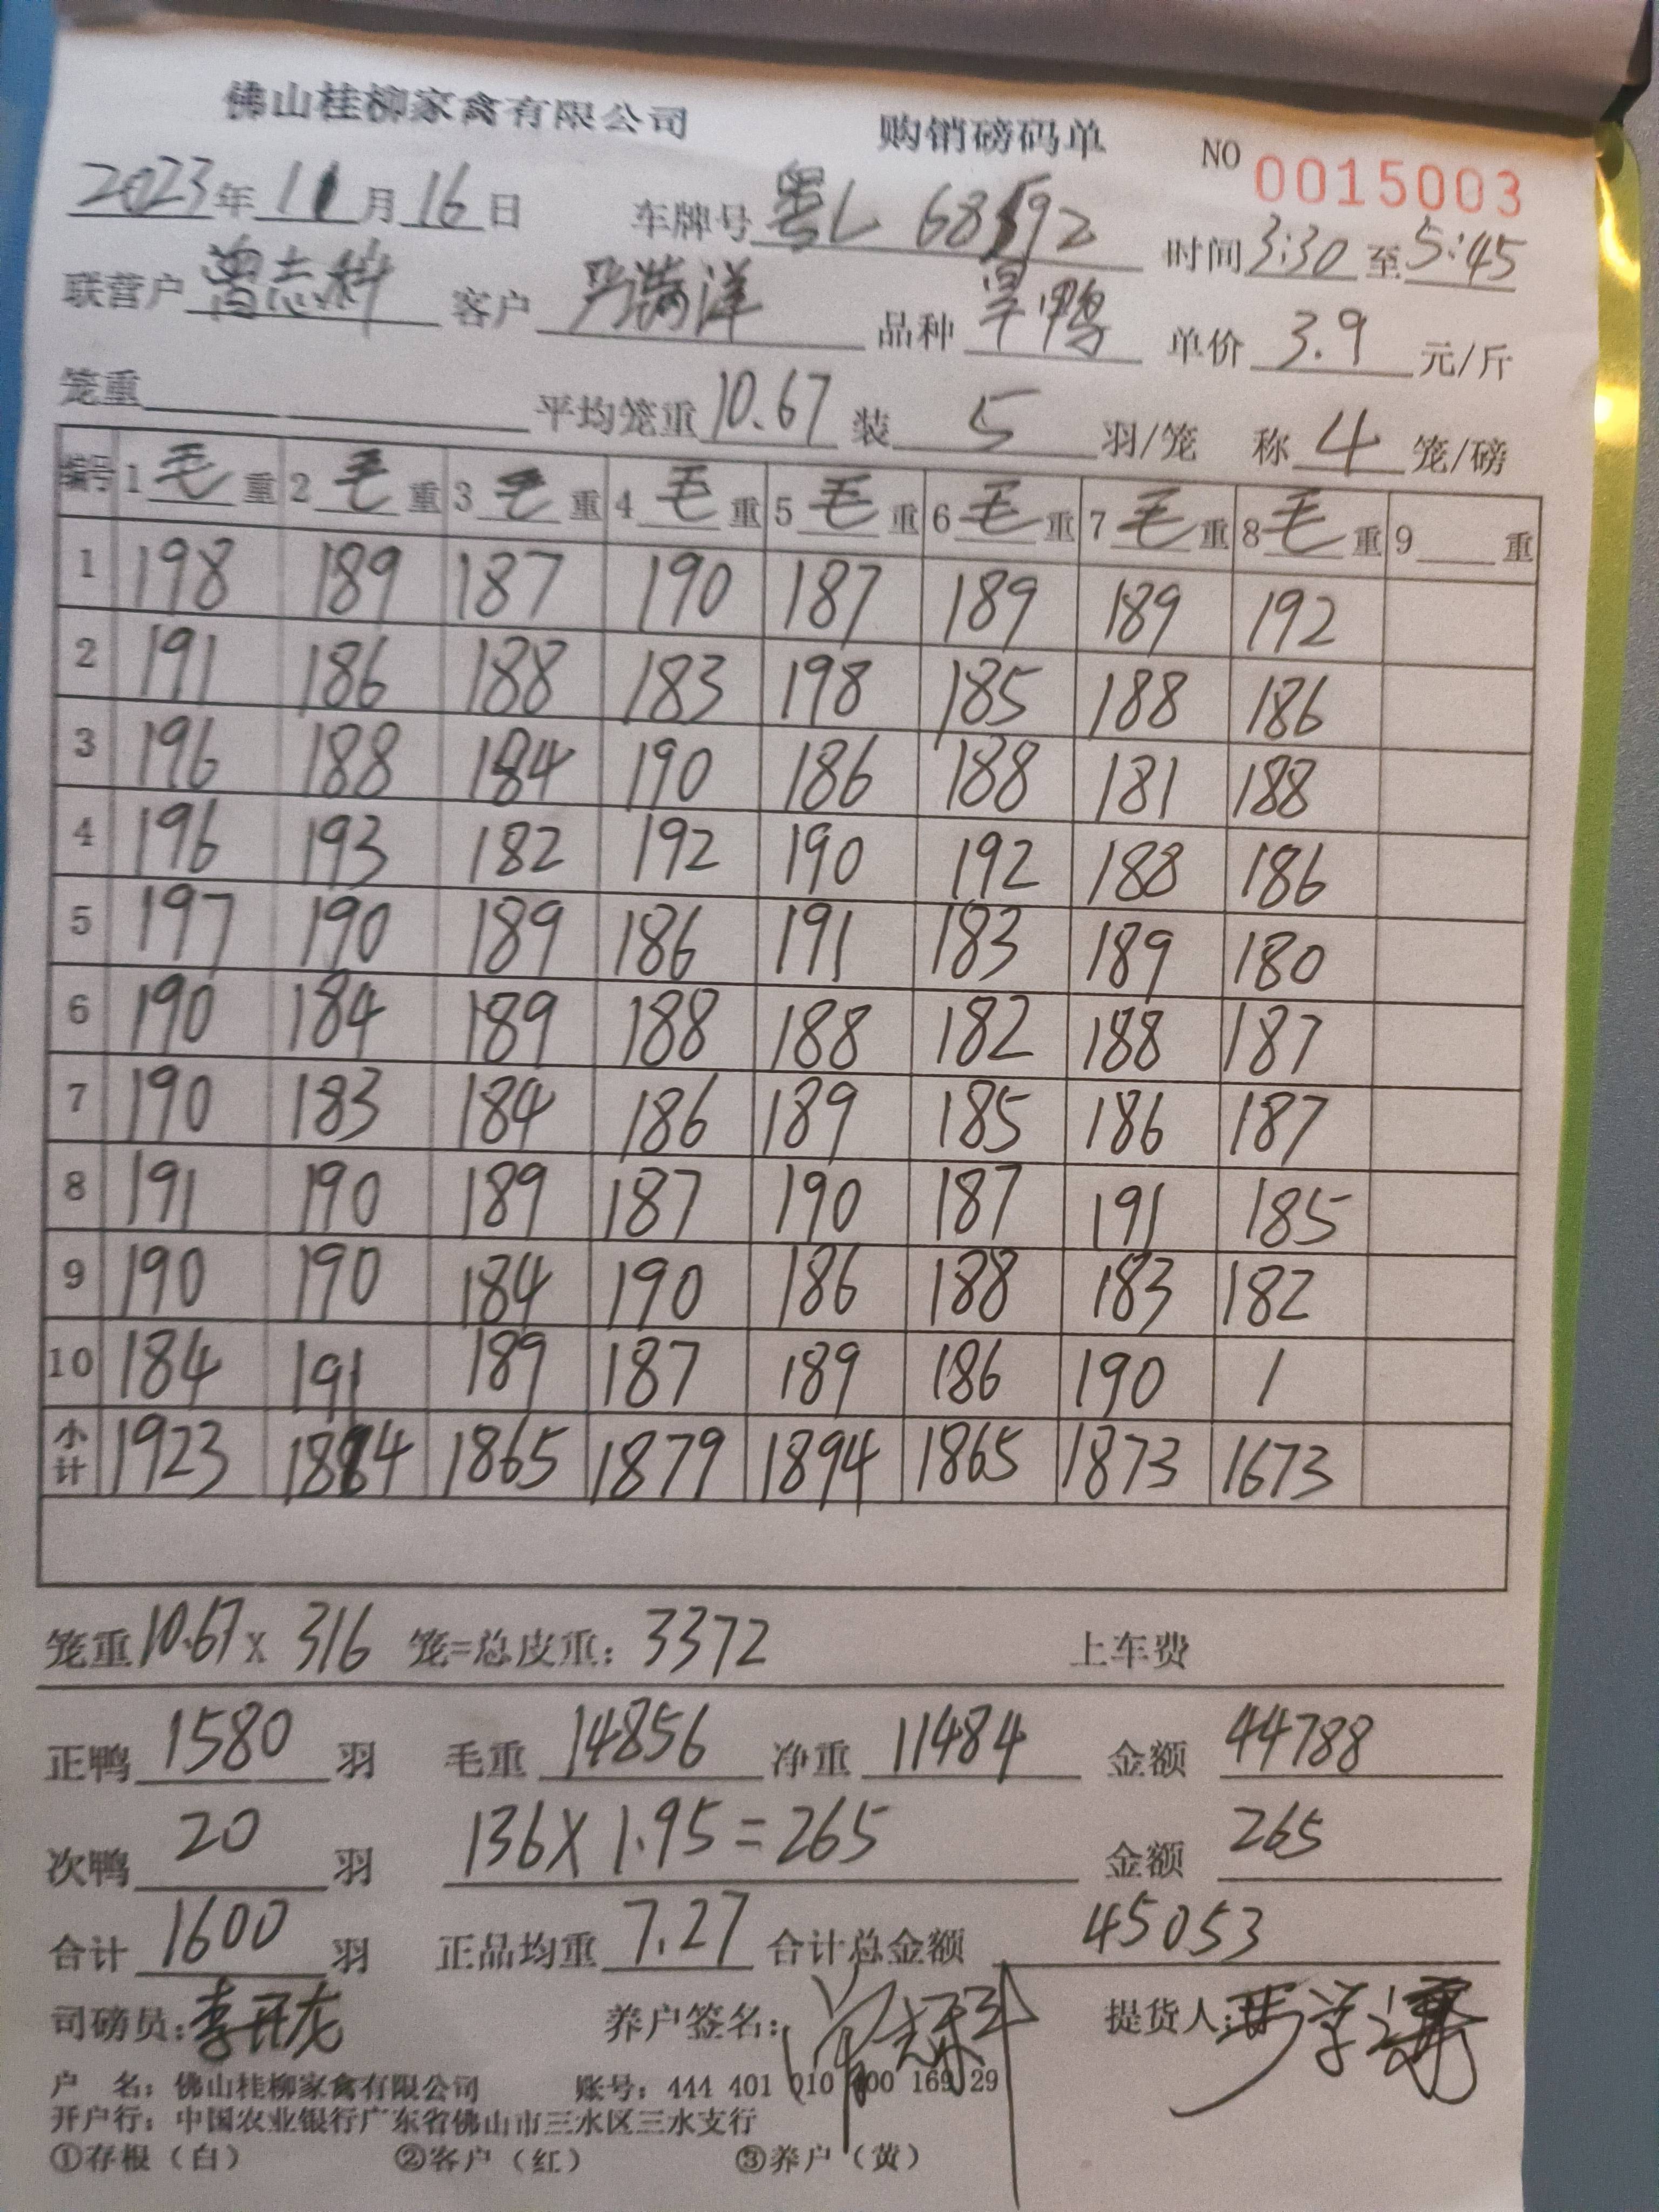 佛山桂柳家禽有限公司 购销磅码单 NO 0015003
2023年 11月16日 车牌号 粤L 68592 时间3:30至5:45
联营户 曾志科 客户 严满洋 品种 旱鸭 单价 3.9 元/斤
笼重 平均笼重10.67 装 5 羽/笼 称 4 笼/磅
编号 1毛重 2毛重 3毛重 4毛重 5毛重 6毛重 7毛重 8毛重 9 重
1 198 189 187 190 187 189 189 192
2 191 186 188 183 198 185 188 186
3 196 188 184 190 186 188 181 188
4 196 193 182 192 190 192 188 186
5 197 190 189 186 191 183 189 180
6 190 184 189 188 188 182 188 187
7 190 183 184 186 189 185 186 187
8 191 190 189 187 190 187 191 185
9 190 190 184 190 186 188 183 182
10 184 191 189 187 189 186 190 /
小计 1923 1884 1865 1879 1894 1865 1873 1673
笼重10.67 X 316 笼=总皮重: 3372 上车费
正鸭 1580 羽 毛重 14856 净重 11484 金额 44788
次鸭 20 羽 136X1.95=265 金额 265
合计 1600 羽 正品均重 7.27 合计总金额 45053
司磅员:李开龙 养户签名: 提货人:
户 名: 佛山桂柳家禽有限公司 账号: 444 401 010 400 169 29
开户行: 中国农业银行广东省佛山市三水区三水支行
①存根（白） ②客户（红） ③养户（黄）